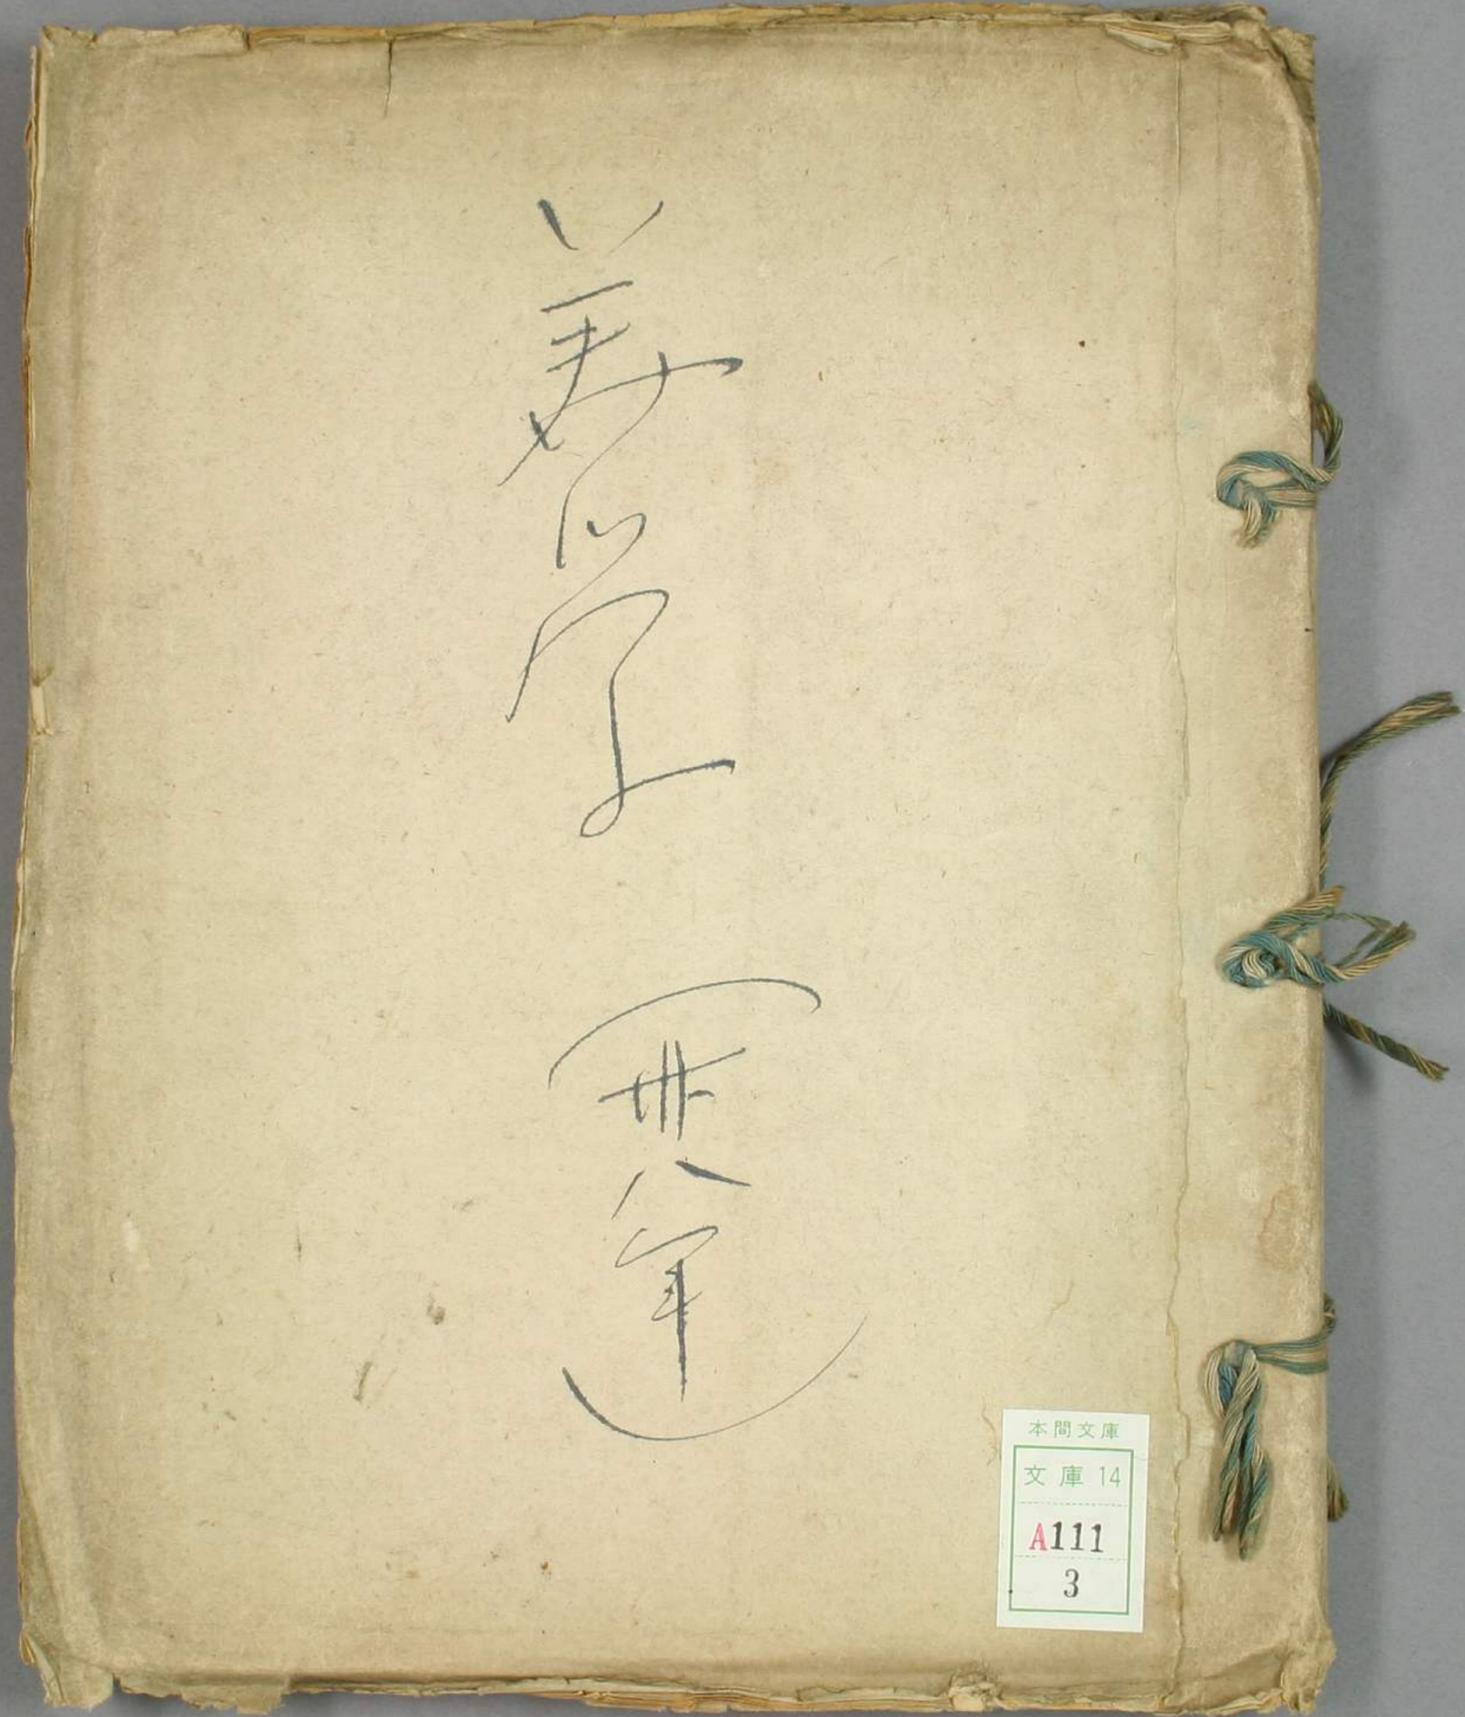 美学
(卅八年)
本間文庫
文庫14
A111
3